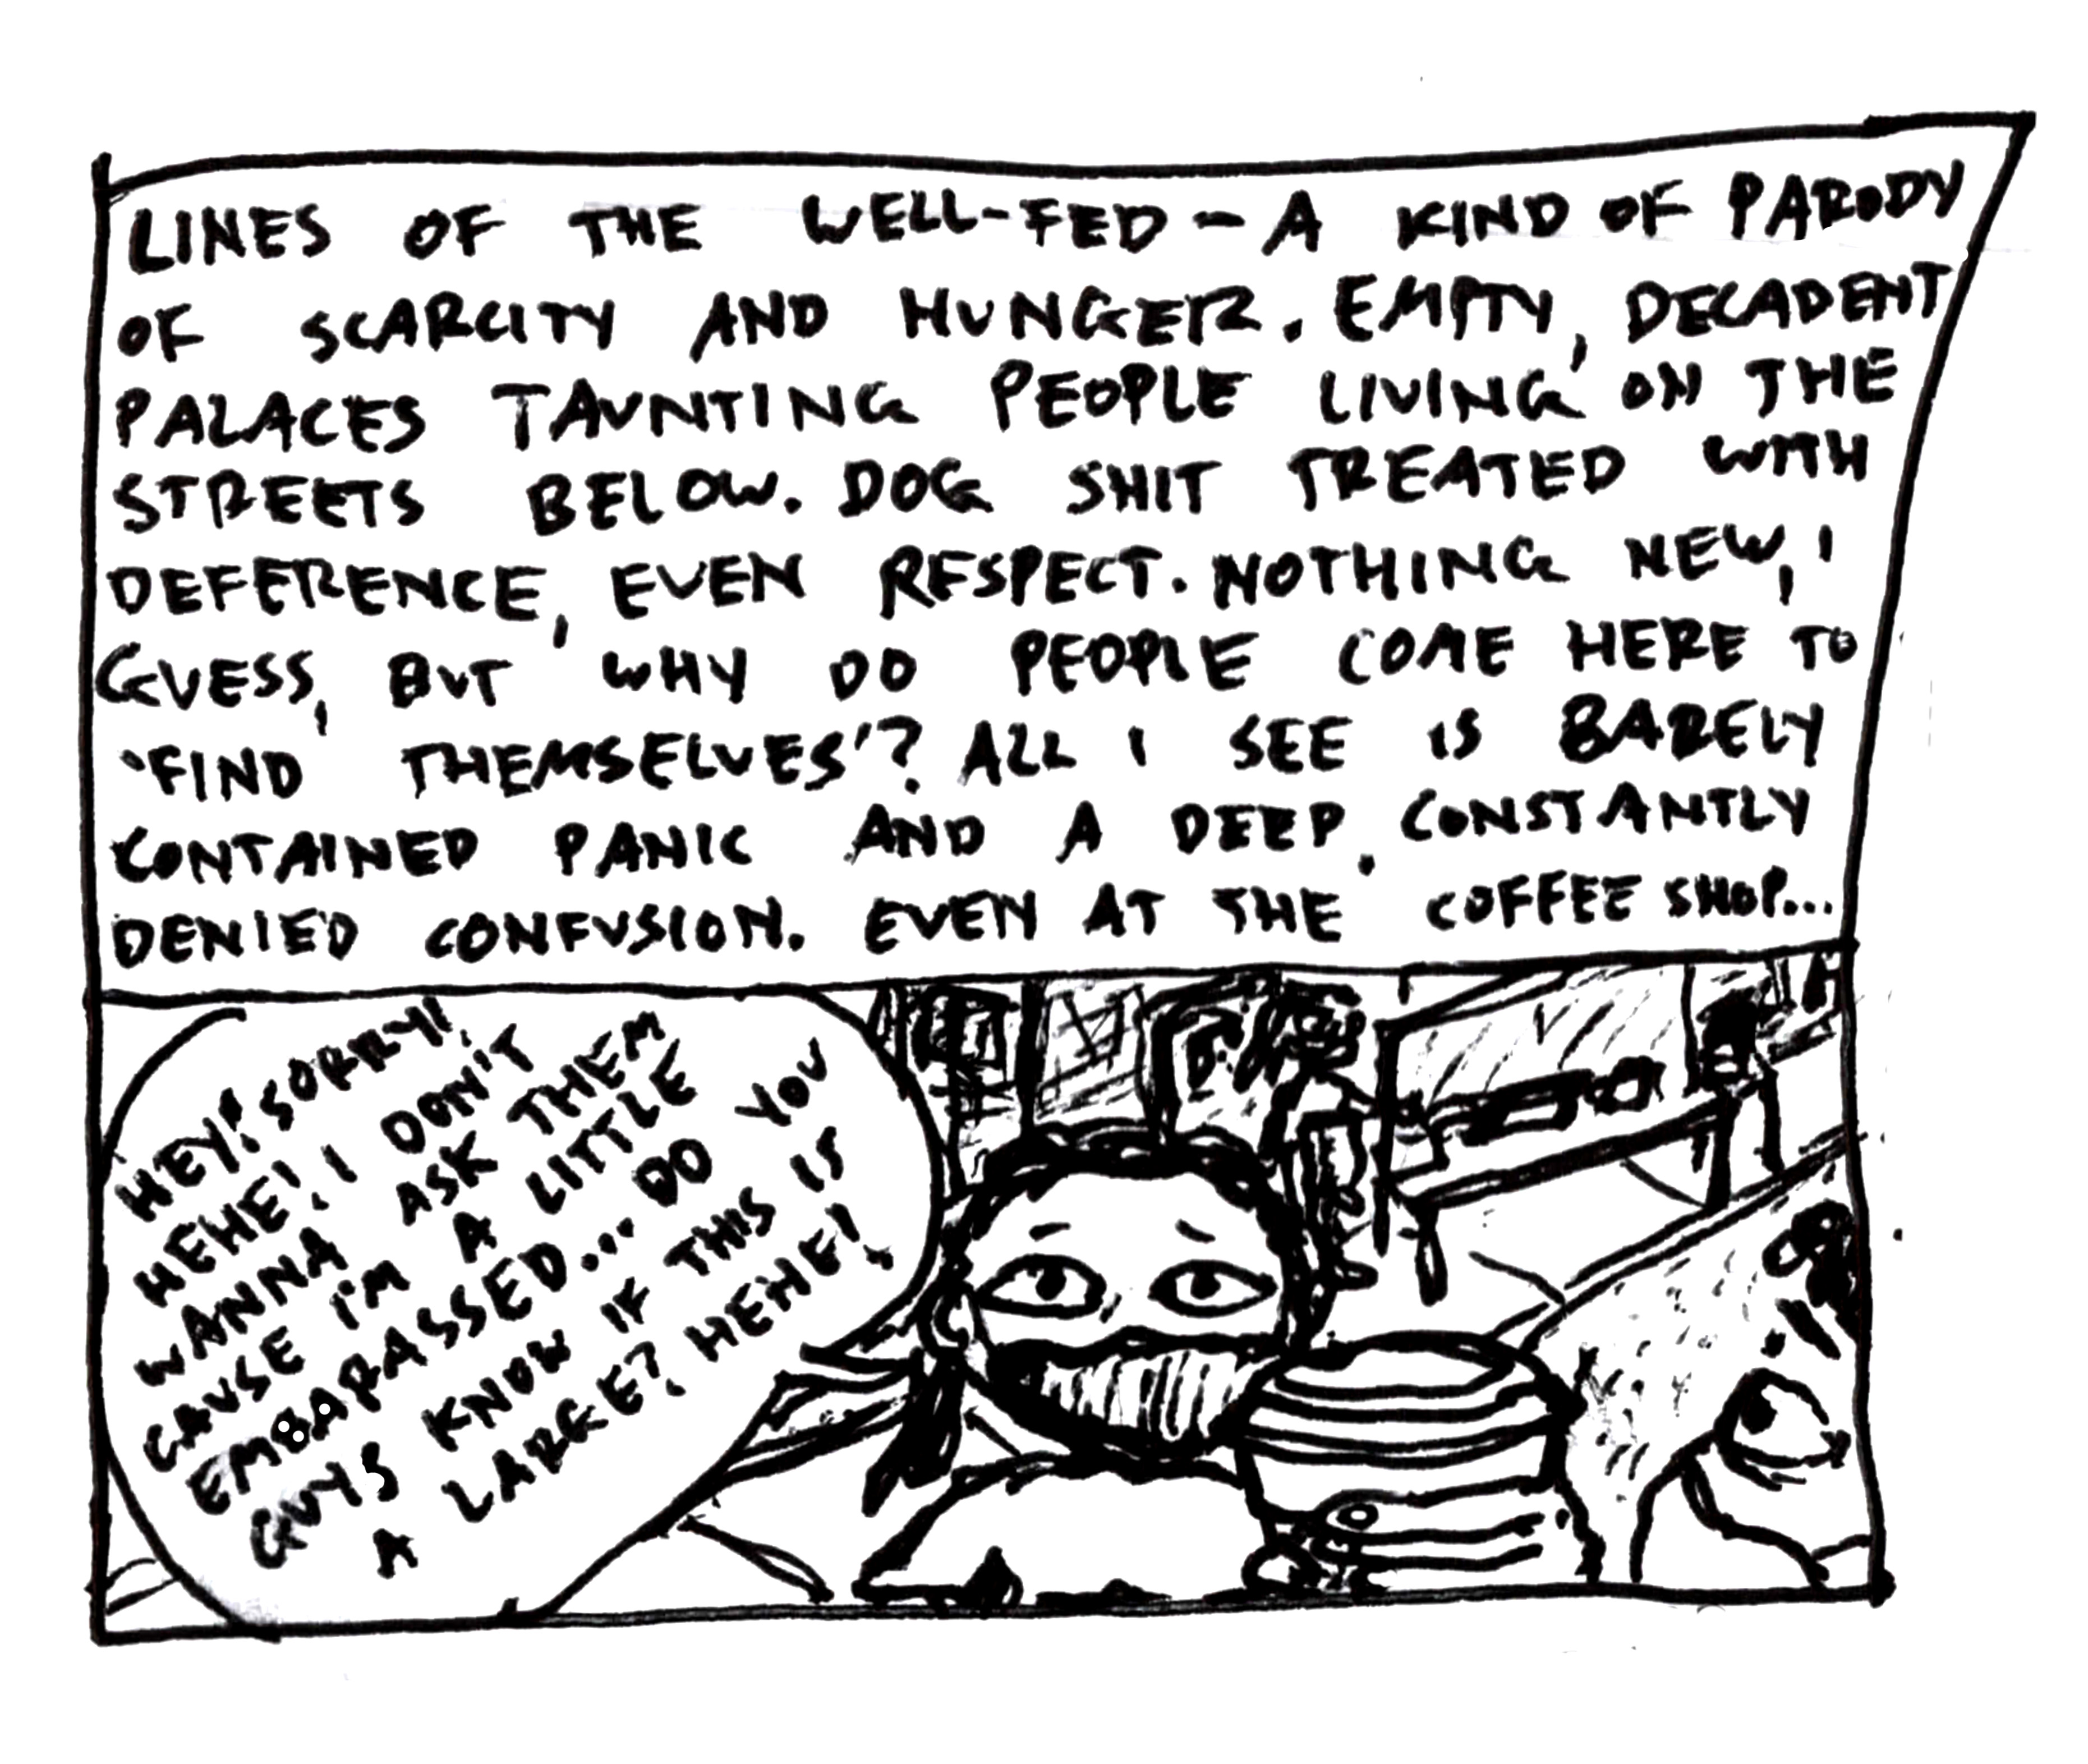 LINES OF THE WELL-FED - A KIND OF PARODY
OF SCARCITY AND HUNGER. EMPTY, DECADENT
PALACES TAUNTING PEOPLE LIVING ON THE
STREETS BELOW. DOG SHIT TREATED WITH
DEFERENCE, EVEN RESPECT. NOTHING NEW, I
GUESS, BUT WHY DO PEOPLE COME HERE TO
'FIND THEMSELVES'? ALL I SEE IS BARELY
CONTAINED PANIC AND A DEEP, CONSTANTLY
DENIED CONFUSION. EVEN AT THE COFFEE SHOP...
HEY! SORRY!
HEHE! I DON'T
WANNA ASK THEM
CAUSE I'M A LITTLE
EMBARASSED... DO YOU
GUYS KNOW IF THIS IS
A LARGE? HEHE!